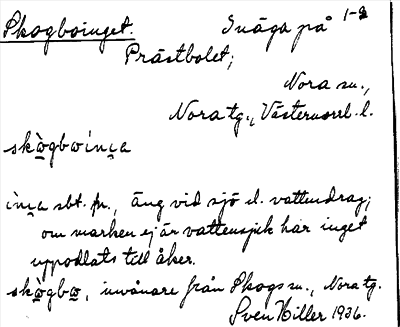 Skogboinget. Inäga på 1-2
Prästbolet;
Nora sn.,
Nora tg., Västernorrl. l.
skògbωínca
ìnca sbt. fn., äng vid sjö el. vattendrag;
om marken ej är vattensjuk har inget
uppodlats till åker.
skògbω, invånare från Skogs sn., Nora tg.
Sven Hiller 1936.